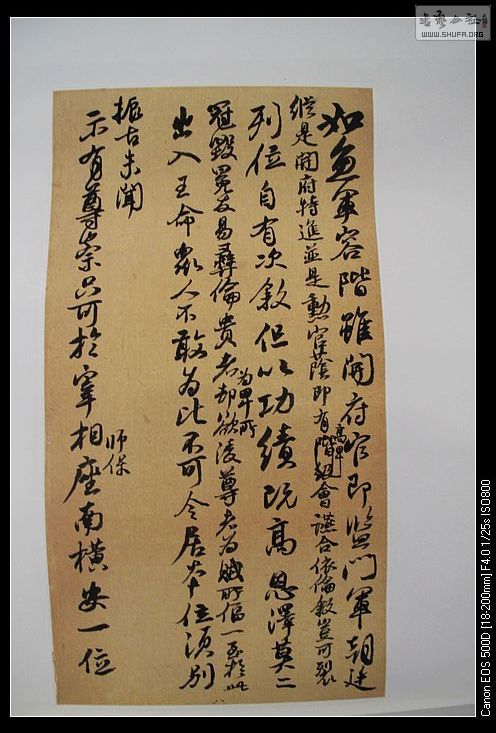 如魚軍容階雖開府官即監門軍朝廷
縱是開府特進並是勳官蔭即有階會讌合依倫敘豈可裂
高卑
列位自有次敘但以功績既高恩澤莫二
冠毀冕反易彝倫貴者却欲淩尊者為賊所偪一至於此
為卑所
出入王命眾人不敢為比不可令居本位須別
振古未聞
示有尊崇只可於宰相座南橫安一位
師保
書藝公社
WWW.SHUFA.ORG
Canon EOS 500D [18-200mm] F4.0 1/25s ISO800